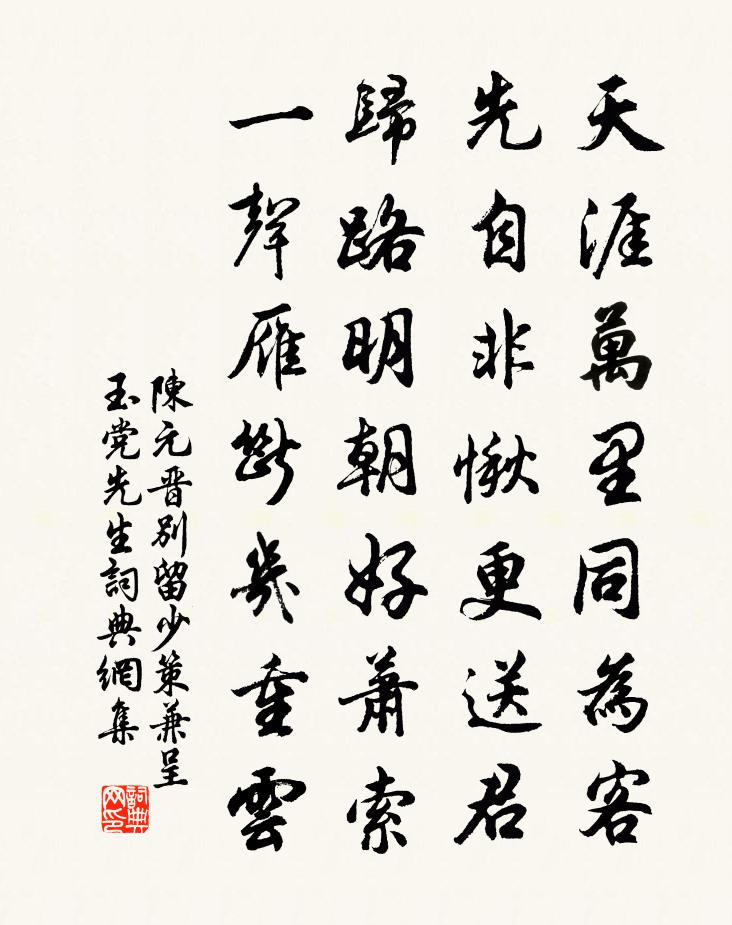 天涯萬里同為客
先自非愀更送君
歸路明朝好蕭索
一聲雁斷幾重雲
陳元晋別留少策兼呈
玉党先生詞典網集
詞典网印